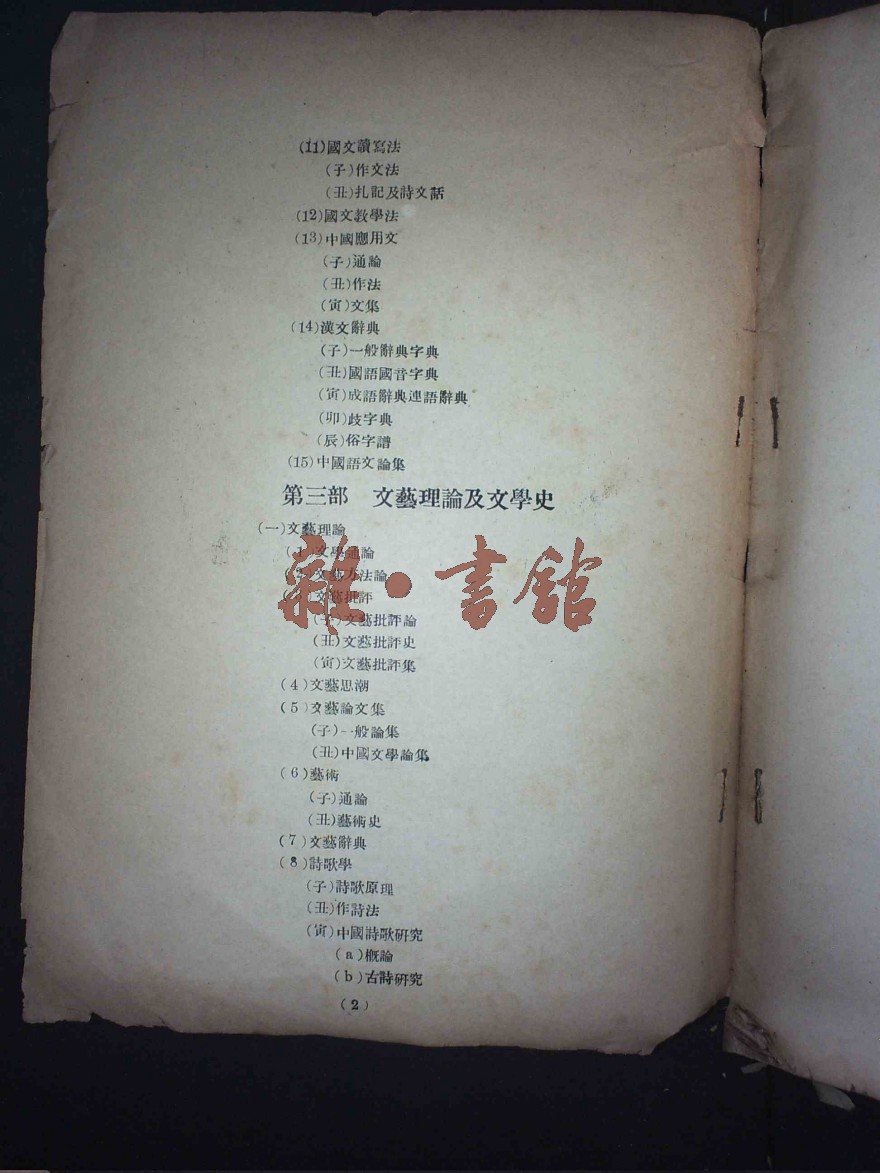 (11)國文讀寫法
(子)作文法
(丑)扎記及詩文話
(12)國文教學法
(13)中國應用文
(子)通論
(丑)作法
(寅)文集
(14)漢文辭典
(子)一般辭典字典
(丑)國語國音字典
(寅)成語辭典連語辭典
(卯)歧字典
(辰)俗字譜
(15)中國語文論集
第三部 文藝理論及文學史
(一)文藝理論
(1)文學通論
(2)文藝方法論
文藝批評
(子)文藝批評論
(丑)文藝批評史
(寅)文藝批評集
(4)文藝思潮
(5)文藝論文集
(子)一般論集
(丑)中國文學論集
(6)藝術
(子)通論
(丑)藝術史
(7)文藝辭典
(8)詩歌學
(子)詩歌原理
(丑)作詩法
(寅)中國詩歌研究
(a)概論
(b)古詩研究
(2)
雜·書館